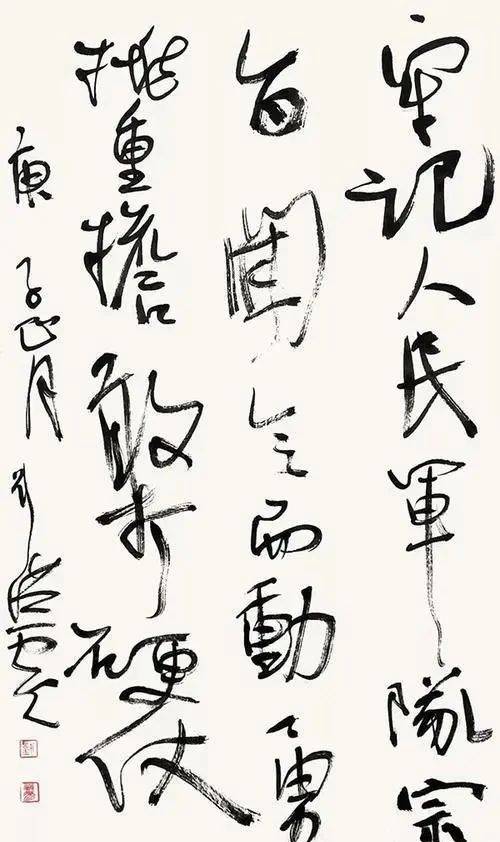 牢记人民軍隊宗
旨聞令而動勇
挑重擔敢打硬仗
庚子正月